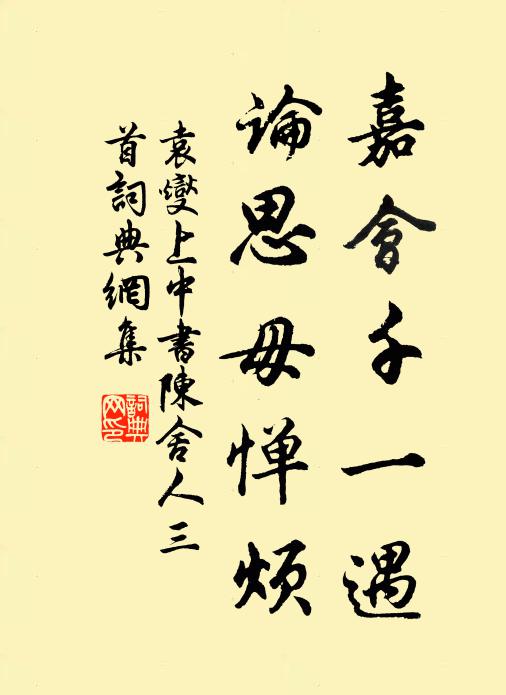 嘉會千一遇
論思毋惮煩
袁燮上中書陳舍人三
首詞典網集
詞典网印